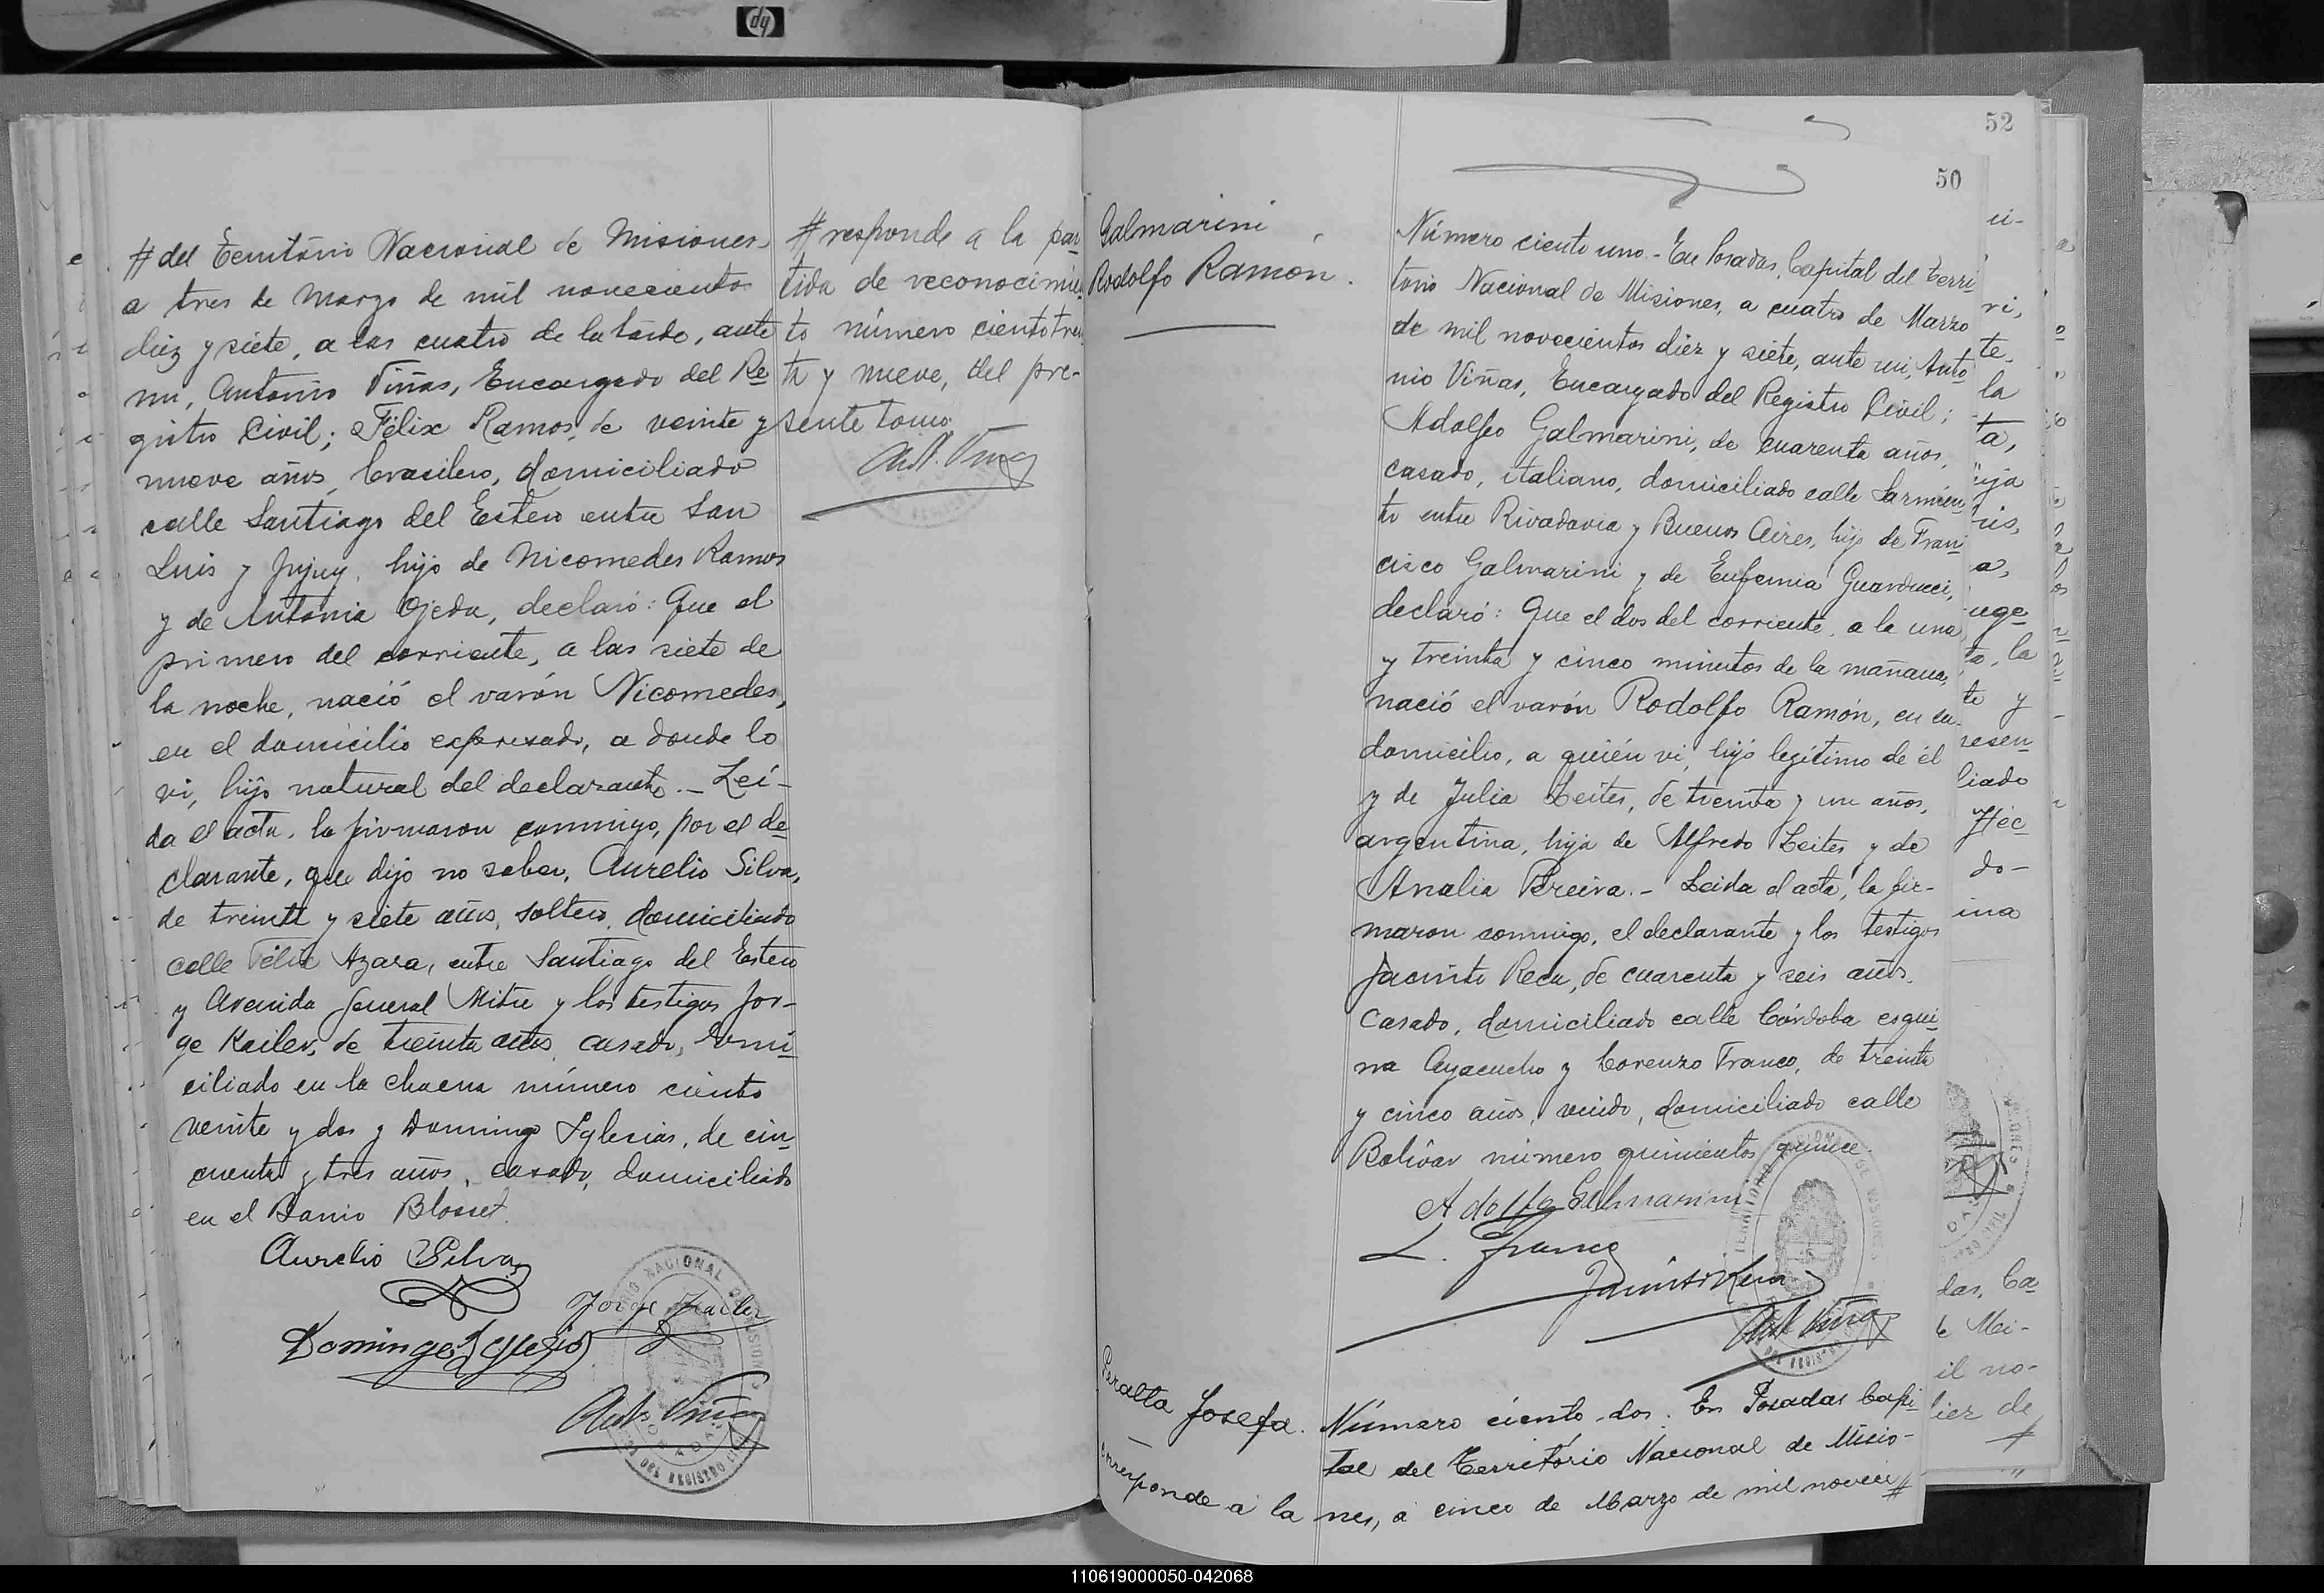 hp
# del Territorio Nacional de Misiones,
a tres de Marzo de mil novecientos
diez y siete, a las cuatro de la tarde, ante
mi, Antonio Viñas, Encargado del Re
gistro Civil; Félix Ramos, de veinte y
nueve años, brasilero, domiciliado
calle Santiago del Estero entre San
Luis y Jujuy, hijo de Nicomedes Ramos
y de Antonia Ojeda, declaró: Que el
primero del corriente, a las siete de
la noche, nació el varón Nicomedes,
en el domicilio expresado, a donde lo
vi, hijo natural del declarante. - Leí-
da el acta, la firmaron conmigo, por el de
clarante, que dijo no saber, Aurelio Silva,
de treinta y siete años, soltero, domiciliado
calle Félix Azara, entre Santiago del Estero
y Avenida General Mitre y los testigos Jor-
ge Kailer, de treinta años, casado, domi
ciliado en la chacra número ciento
veinte y dos y Domingo Iglesias, de cin
cuenta y tres años, casado, domiciliado
en el Barrio Blosset.
Aurelio Silva
Jorge Kailer
Domingo Iglesias
Ant. Viñas
# responde a la par
tida de reconocimien
to número ciento trein
ta y nueve, del pre-
sente tomo.
Ant. Viñas
52
50
Galmarini
Rodolfo Ramón.
Número ciento uno. - En Posadas, Capital del Terri
torio Nacional de Misiones, a cuatro de Marzo
de mil novecientos diez y siete, ante mi, Anto
nio Viñas, Encargado del Registro Civil;
Adolfo Galmarini, de cuarenta años,
casado, italiano, domiciliado calle Sarmien
to entre Rivadavia y Buenos Aires, hijo de Fran
cisco Galmarini y de Eufemia Guarducci,
declaró: Que el dos del corriente, a la una
y treinta y cinco minutos de la mañana,
nació el varón Rodolfo Ramón, en su
domicilio, a quién vi, hijo legítimo de él
y de Julia Leites, de treinta y un años,
argentina, hija de Alfredo Leites y de
Analia Pereira. - Leida el acta, la fir-
maron conmigo, el declarante y los testigos
Jacinto Recu, de cuarenta y seis años,
casado, domiciliado calle Córdoba esqui
na Ayacucho y Lorenzo Franco, de treinta
y cinco años, viudo, domiciliado calle
Bolívar número quinientos quince.
Adolfo Galmarini
L. Franco
Jacinto Recu
Ant. Viñas
Peralta Josefa.
Número ciento dos. En Posadas Capi
tal del Territorio Nacional de Misio-
nes, a cinco de Marzo de mil novecie #
Corresponde a la
ri,
te
la
ta,
uja
ris,
a,
uge
ta, la
te y
resen
liado
Héc
do-
ina
das, Ca
de Mi-
il no-
iez de
110619000050-042068